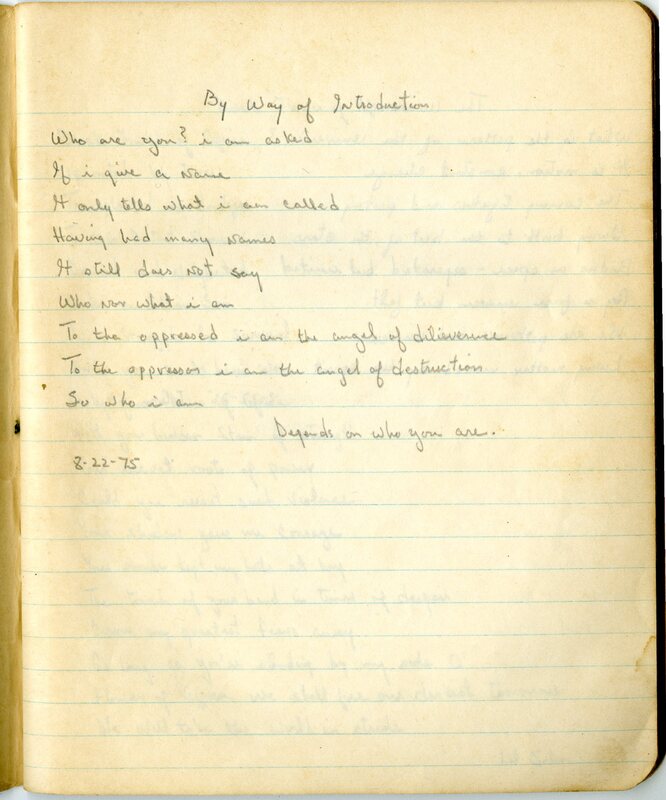 By Way of Introduction
Who are you? i am asked
If i give a name
It only tells what i am called
Having had many names
It still does not say
Who nor what i am
To tha oppressed i am the angel of dilieverence
To the oppressor i am the angel of destruction
So who i am
Depends on who you are.
8-22-75